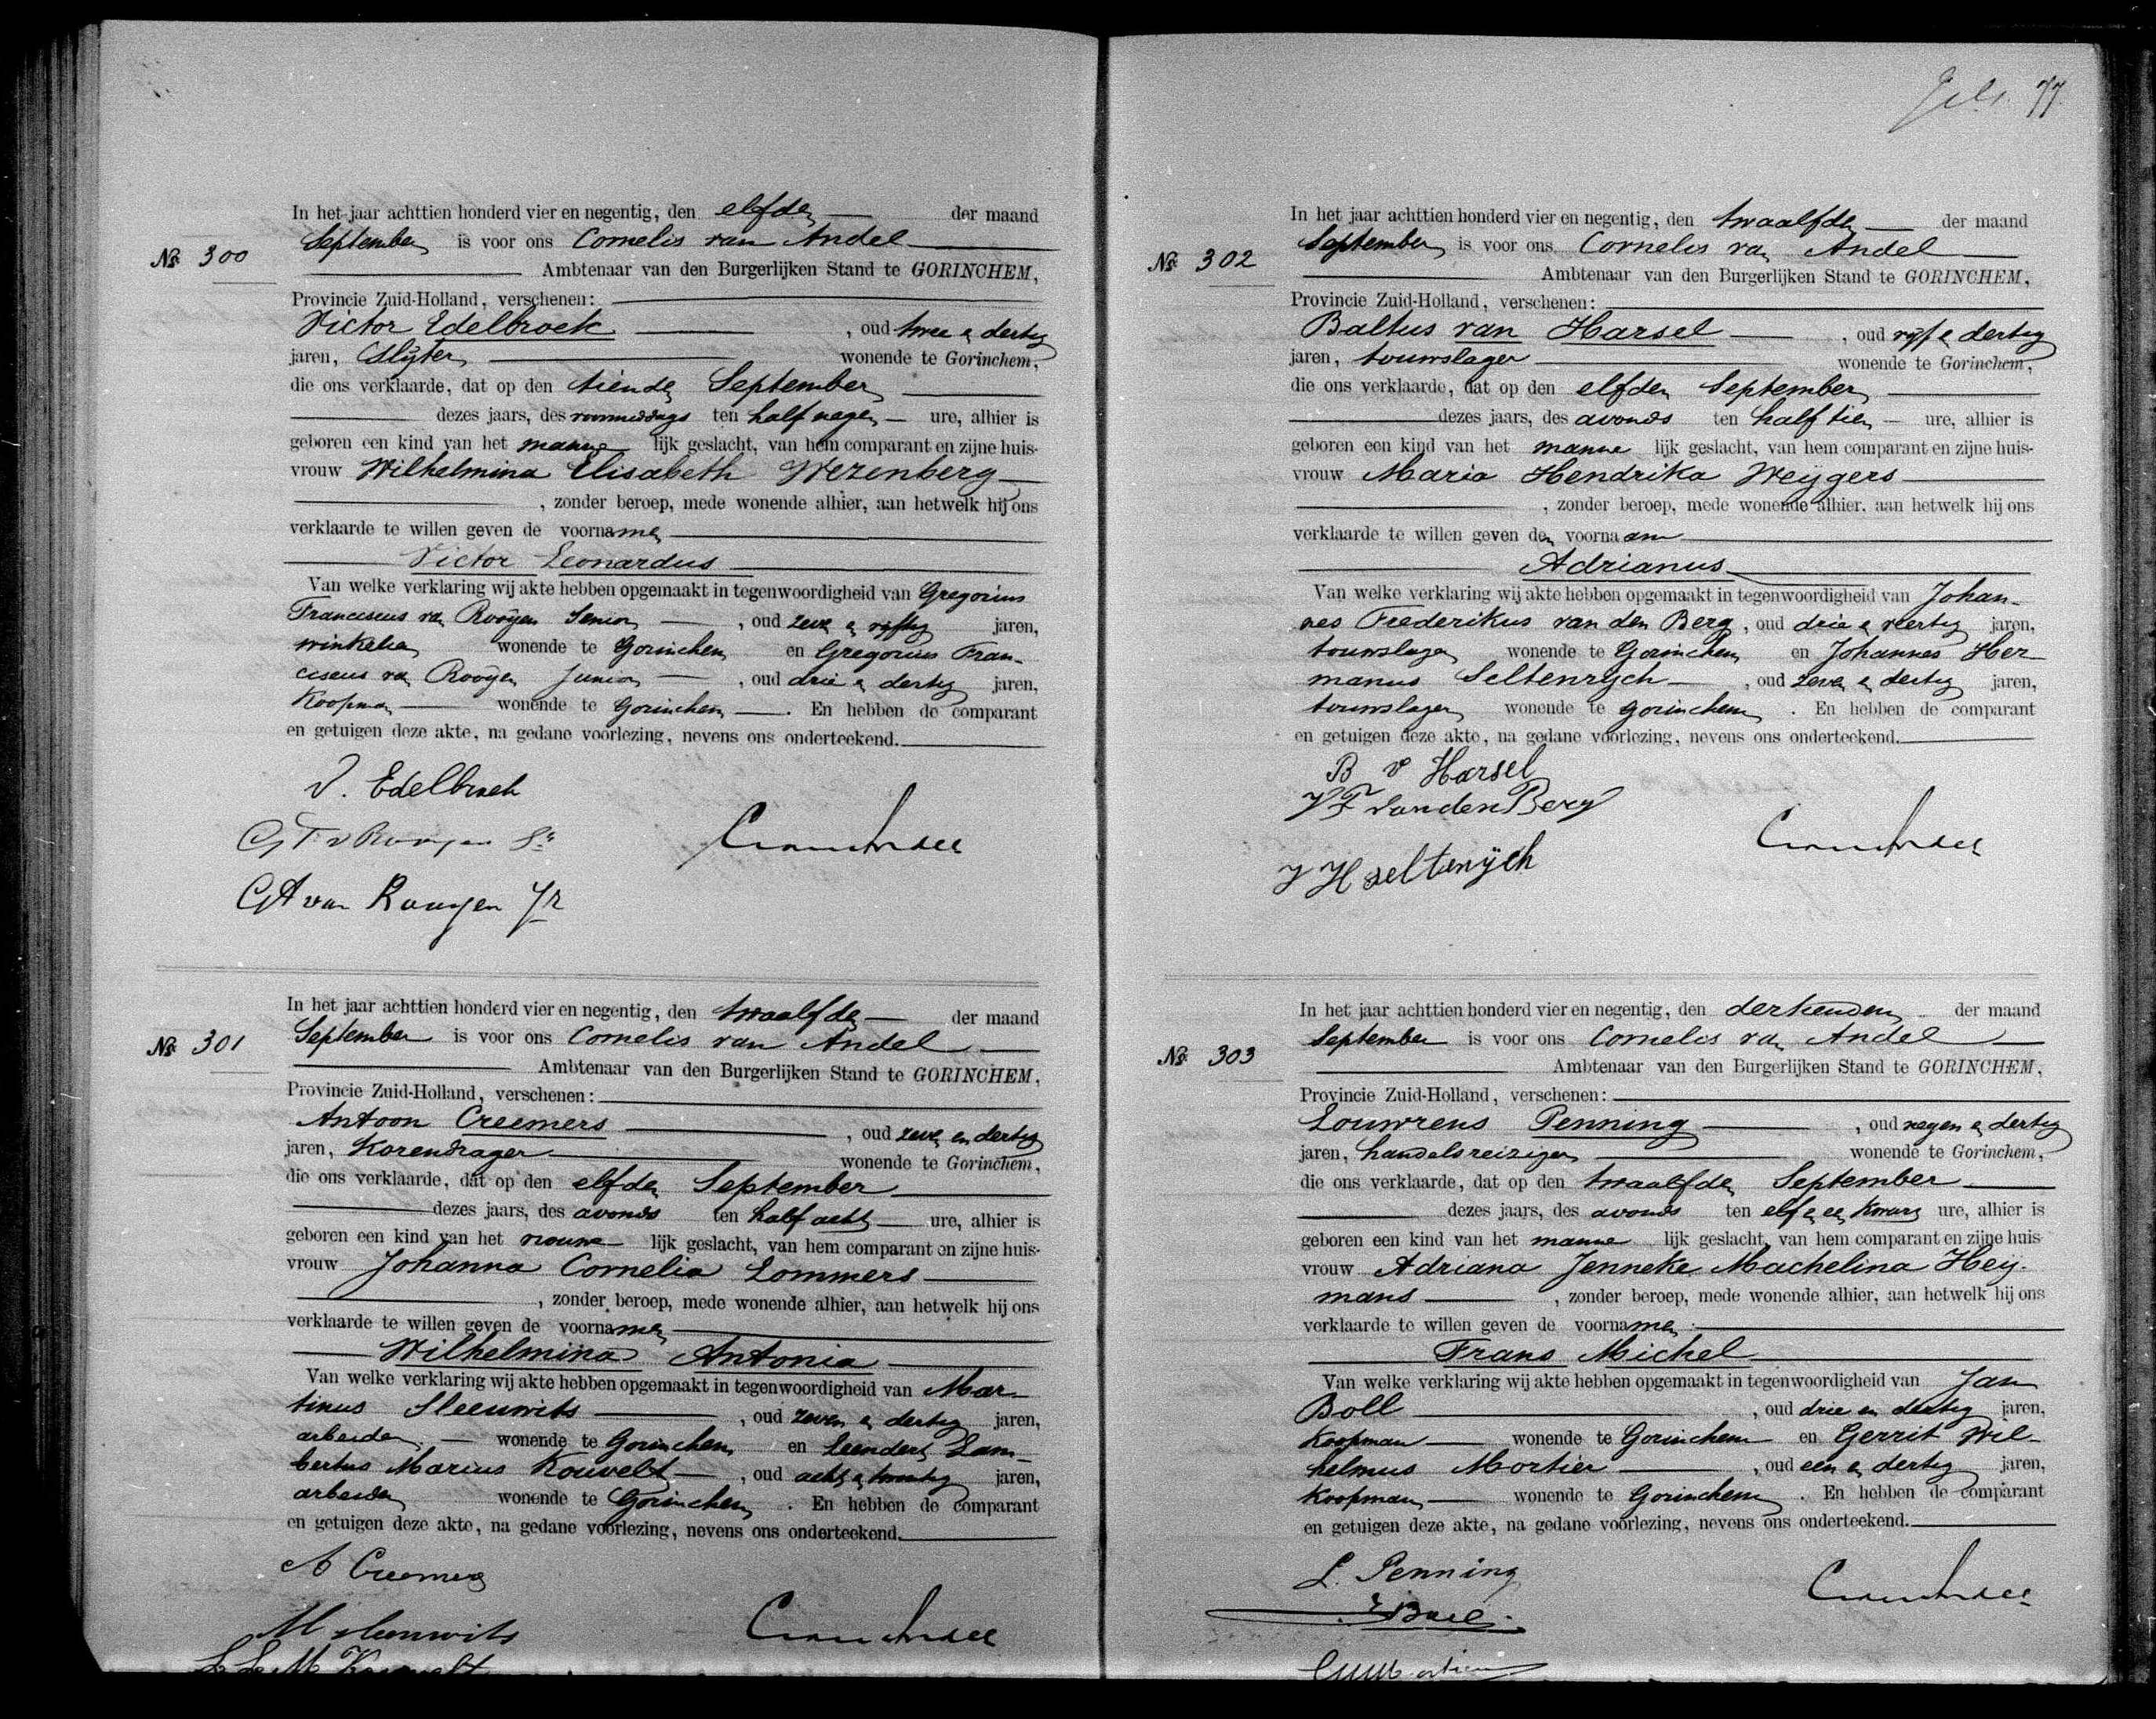 Nº 300
In het jaar achttien honderd vier en negentig, den elfden der maand
September is voor ons Cornelis van Andel
Ambtenaar van den Burgerlijken Stand te GORINCHEM,
Provincie Zuid-Holland, verschenen:
Victor Edelbroek, oud twee en dertig
jaren, Slijter, wonende te Gorinchem,
die ons verklaarde, dat op den tienden September
dezes jaars, des voormiddags ten half negen ure, alhier is
geboren een kind van het manne lijk geslacht, van hem comparant en zijne huis-
vrouw Wilhelmina Elisabeth Wezenberg
, zonder beroep, mede wonende alhier, aan hetwelk hij ons
verklaarde te willen geven de voornamen
Victor Leonardus
Van welke verklaring wij akte hebben opgemaakt in tegenwoordigheid van Gregorius
Franciscus van Rooijen Senior, oud zeven en vijftig jaren,
winkelier wonende te Gorinchem en Gregorius Fran-
ciscus van Rooijen Junior, oud drie en dertig jaren,
Koopman wonende te Gorinchem. En hebben de comparant
en getuigen deze akte, na gedane voorlezing, nevens ons onderteekend.
V. Edelbroek
G F v Rooijen Sr
CvanAndel
van Rooijen Jr
Nº 301
In het jaar achttien honderd vier en negentig, den twaalfden der maand
September is voor ons Cornelis van Andel
Ambtenaar van den Burgerlijken Stand te GORINCHEM,
Provincie Zuid-Holland, verschenen:
Antoon Creemers, oud zeven en dertig
jaren, Korendrager wonende te Gorinchem,
die ons verklaarde, dat op den elfden September
dezes jaars, des avonds ten half acht ure, alhier is
geboren een kind van het vrouwe lijk geslacht, van hem comparant en zijne huis-
vrouw Johanna Cornelia Lommers
, zonder beroep, mede wonende alhier, aan hetwelk hij ons
verklaarde te willen geven de voornamen
Wilhelmina Antonia
Van welke verklaring wij akte hebben opgemaakt in tegenwoordigheid van Mar-
tinus Sleeuwits, oud zeven en dertig jaren,
arbeider wonende te Gorinchem en Leendert Lam-
bertus Marius Kouvelt, oud acht en twintig jaren,
arbeider wonende te Gorinchem. En hebben de comparant
en getuigen deze akte, na gedane voorlezing, nevens ons onderteekend.
A Creemers
M sleeuwits
CvanAndel
L L M Kouvelt
77
Nº 302
In het jaar achttien honderd vier en negentig, den twaalfden der maand
September is voor ons Cornelis van Andel
Ambtenaar van den Burgerlijken Stand te GORINCHEM,
Provincie Zuid-Holland, verschenen:
Baltus van Harsel, oud vijf en dertig
jaren, touwslager wonende te Gorinchem,
die ons verklaarde, dat op den elfden September
dezes jaars, des avonds ten half tien ure, alhier is
geboren een kind van het manne lijk geslacht, van hem comparant en zijne huis-
vrouw Maria Hendrika Weijgers
, zonder beroep, mede wonende alhier, aan hetwelk hij ons
verklaarde te willen geven den voornaam
Adrianus
Van welke verklaring wij akte hebben opgemaakt in tegenwoordigheid van Johan-
nes Frederikus van den Berg, oud drie en veertig jaren,
touwslager wonende te Gorinchem en Johannes Her-
manus Seltenrijch, oud zeven en dertig jaren,
touwslager wonende te Gorinchem. En hebben de comparant
en getuigen deze akte, na gedane voorlezing, nevens ons onderteekend.
B v Harsel
J F van den Berg
CvanAndel
J H seltenrijch
Nº 303
In het jaar achttien honderd vier en negentig, den dertienden der maand
September is voor ons Cornelis van Andel
Ambtenaar van den Burgerlijken Stand te GORINCHEM,
Provincie Zuid-Holland, verschenen:
Louwrens Penning, oud negen en dertig
jaren, handelsreiziger wonende te Gorinchem,
die ons verklaarde, dat op den twaalfden September
dezes jaars, des avonds ten elf en een kwart ure, alhier is
geboren een kind van het manne lijk geslacht, van hem comparant en zijne huis
vrouw Adriana Jenneke Machelina Heij-
mans, zonder beroep, mede wonende alhier, aan hetwelk hij ons
verklaarde te willen geven de voornamen
Frans Michel
Van welke verklaring wij akte hebben opgemaakt in tegenwoordigheid van Jan
Boll, oud drie en dertig jaren,
Koopman wonende te Gorinchem en Gerrit Wil-
helmus Mortier, oud een en dertig jaren,
Koopman wonende te Gorinchem. En hebben de comparant
en getuigen deze akte, na gedane voorlezing, nevens ons onderteekend.
L. Penning
CvanAndel
J Boll
GWMortier